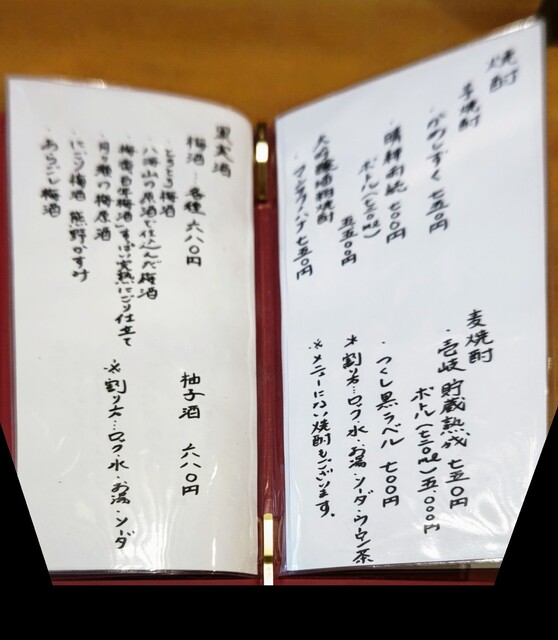 焼酎
芋焼酎
・がんこしずく 七五〇円
・晴耕雨読 七〇〇円
ボトル(七二〇ml)
五、五〇〇円
大吟醸酒粕焼酎
七五〇円
麦焼酎
・壱岐 貯蔵熟成 七五〇円
ボトル(七二〇ml)五、〇〇〇円
・つくし黒ラベル 七〇〇円
※割り方…ロック・水・お湯・ソーダ・ウーロン茶
※メニューにない焼酎もございます。
果実酒
梅酒…各種 六八〇円
・とろとろ梅酒
・八海山の原酒で仕込んだ梅酒
・梅香 百年梅酒 すっぱい完熟にごり仕立て
・月ヶ瀬の梅原酒
・にごり梅酒 熊野かすみ
・あらごし梅酒
柚子酒 六八〇円
※割り方…ロック・水・お湯・ソーダ